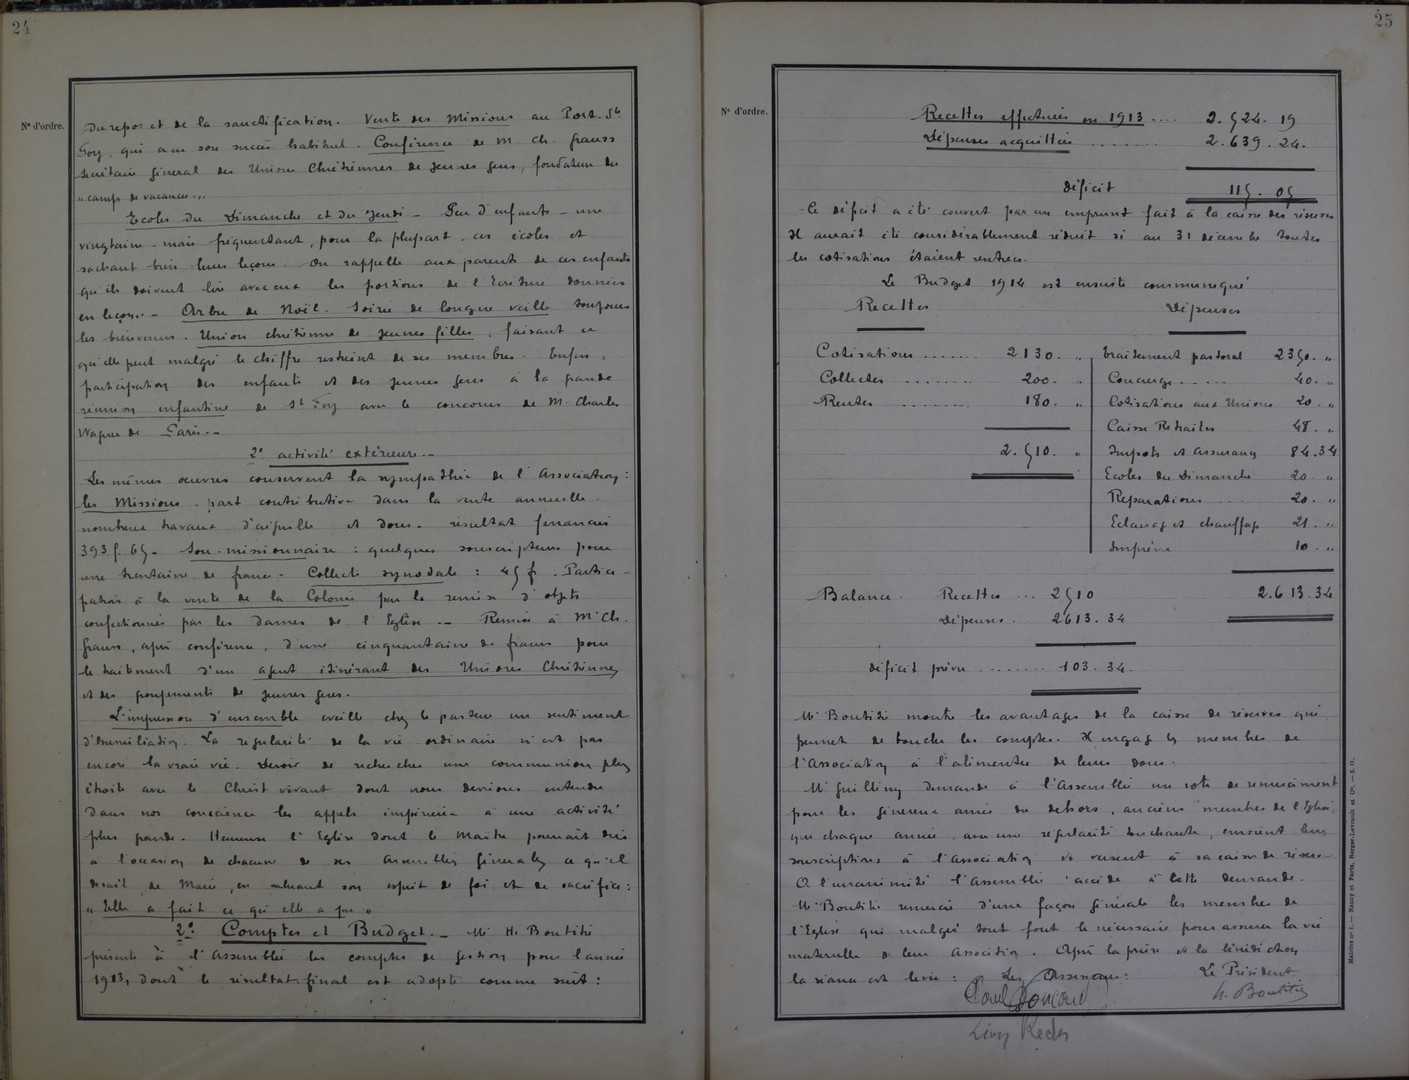 24
N° d'ordre.
du repos et de la sanctification. Vente des Missions au Port. Ste
Foy, qui a eu son succès habituel. Conférence de M. Ch. Grauss
secrétaire général des Unions Chrétiennes de jeunes gens, fondateur des
"camps de vacances".
Ecoles du Dimanche et du Jeudi - Peu d'enfants - une
vingtaine - mais fréquentant, pour la plupart, ces écoles et
sachant bien leurs leçons. On rappelle aux parents de ces enfants
qu'ils doivent lire avec eux les portions de l'Ecriture données
en leçons. - Arbre de Noël. Soirée de longue veille toujours
les bienvenus. Union chrétienne de jeunes filles, faisant ce
qu'elle peut malgré le chiffre restreint de ses membres. Enfin,
participation des enfants et des jeunes gens à la grande
réunion enfantine de St Foy avec le concours de M. Charles
Wagner de Paris. -
2° activité extérieure. -
Les mêmes œuvres conservent la sympathie de l'Association :
les Missions - part contributive dans la vente annuelle -
nombreux travaux d'aiguille et dons - résultat financier
393 f. 65 - Sou missionnaire : quelques souscripteurs pour
une trentaine de francs - Collecte synodale : 45 f. Partici-
pation à la vente de la Colonie par la remise d'objets
confectionnés par les Dames de l'Eglise. - Remise à Mr Ch.
Grauss, après conférence, d'une cinquantaine de francs pour
le traitement d'un agent itinérant des Unions Chrétiennes
et des groupements de jeunes gens.
L'impression d'ensemble éveille chez le pasteur un sentiment
d'humiliation. La régularité de la vie ordinaire n'est pas
encore la vraie vie. Devoir de rechercher une communion plus
étroite avec le Christ vivant dont nous devrions entendre
dans nos consciences les appels impérieux à une activité
plus grande. Heureuse l'Eglise dont le Maître pourrait dire
à l'occasion de chacune de ses Assemblées générales ce qu'il
disait de Marie, en saluant son esprit de foi et de sacrifice :
" Elle a fait ce qu'elle a pu "
2° Comptes et Budget. - Mr H. Boutitié
présente à l'Assemblée les comptes de gestion pour l'année
1913, dont le résultat final est adopté comme suit :
25
N° d'ordre.
Recettes effectuées en 1913 .... 2.524.19
Dépenses acquittées ........ 2.639.24.
déficit 115.05
Ce déficit a été couvert par un emprunt fait à la caisse des réserves
Il aurait été considérablement réduit si au 31 décembre toutes
les cotisations étaient rentrées.
Le Budget 1914 est ensuite communiqué
Recettes Dépenses
Cotisations ...... 2130. " traitement pastoral 2350. "
Collectes ........ 200. " Concierge ..... 40. "
Rentes ........ 180. " Cotisations aux Unions 20. "
Caisse Retraites 48. "
2.510. " Impots et Assurances 84.34
Ecoles du Dimanche 20. "
Réparations ... 20. "
Eclairage et chauffage 21. "
Imprévu 10. "
Balance. Recettes ... 2510 2.613.34
Dépenses. 2613.34
déficit prévu ........ 103.34.
Mr Boutitié montre les avantages de la caisse de réserves qui
permet de boucler les comptes. Il engage les membres de
l'Association à l'alimenter de leurs dons.
Mr demande à l'Assemblée un vote de remerciement
pour les généreux amis du dehors, anciens membres de l'Eglise,
qui chaque année, avec une régularité touchante, envoient leurs
souscriptions à l'Association et versent à sa caisse de réserve.
A l'unanimité l'Assemblée accède à cette demande.
Mr Boutitié remercie d'une façon générale les membres de
l'Eglise qui malgré tout font le nécessaire pour assurer la vie
matérielle de leur Association. Après la prière et la bénédiction
la séance est levée : Les Assesseurs : Le Président
Paul H. Boutitié
Léon
Mairies n° 1. — Nancy et Paris, Berger-Levrault et Cie. — J. O.